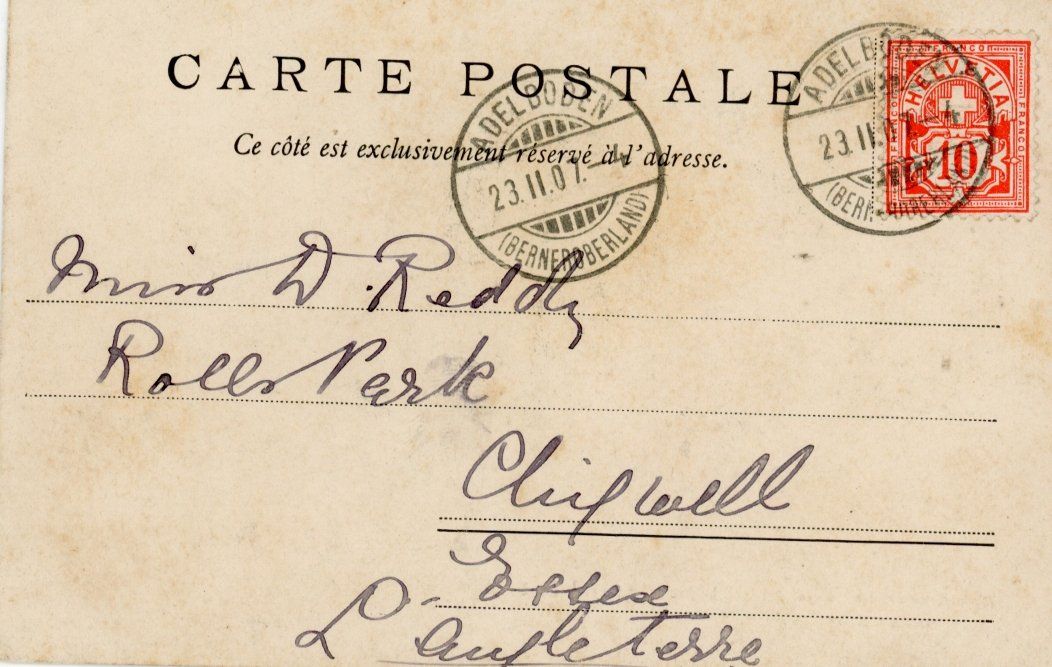 CARTE POSTALE
Ce côté est exclusivement réservé à l'adresse.
ADELBODEN
23. II. 07. – 4
(BERNEROBERLAND)
ADELBODEN
23. II. 07. – 4
FRANCO
HELVETIA
FRANCO
FRANCO
10
Miss D. Reddy
Rolls Park
Chigwell
Essex
L'Angleterre